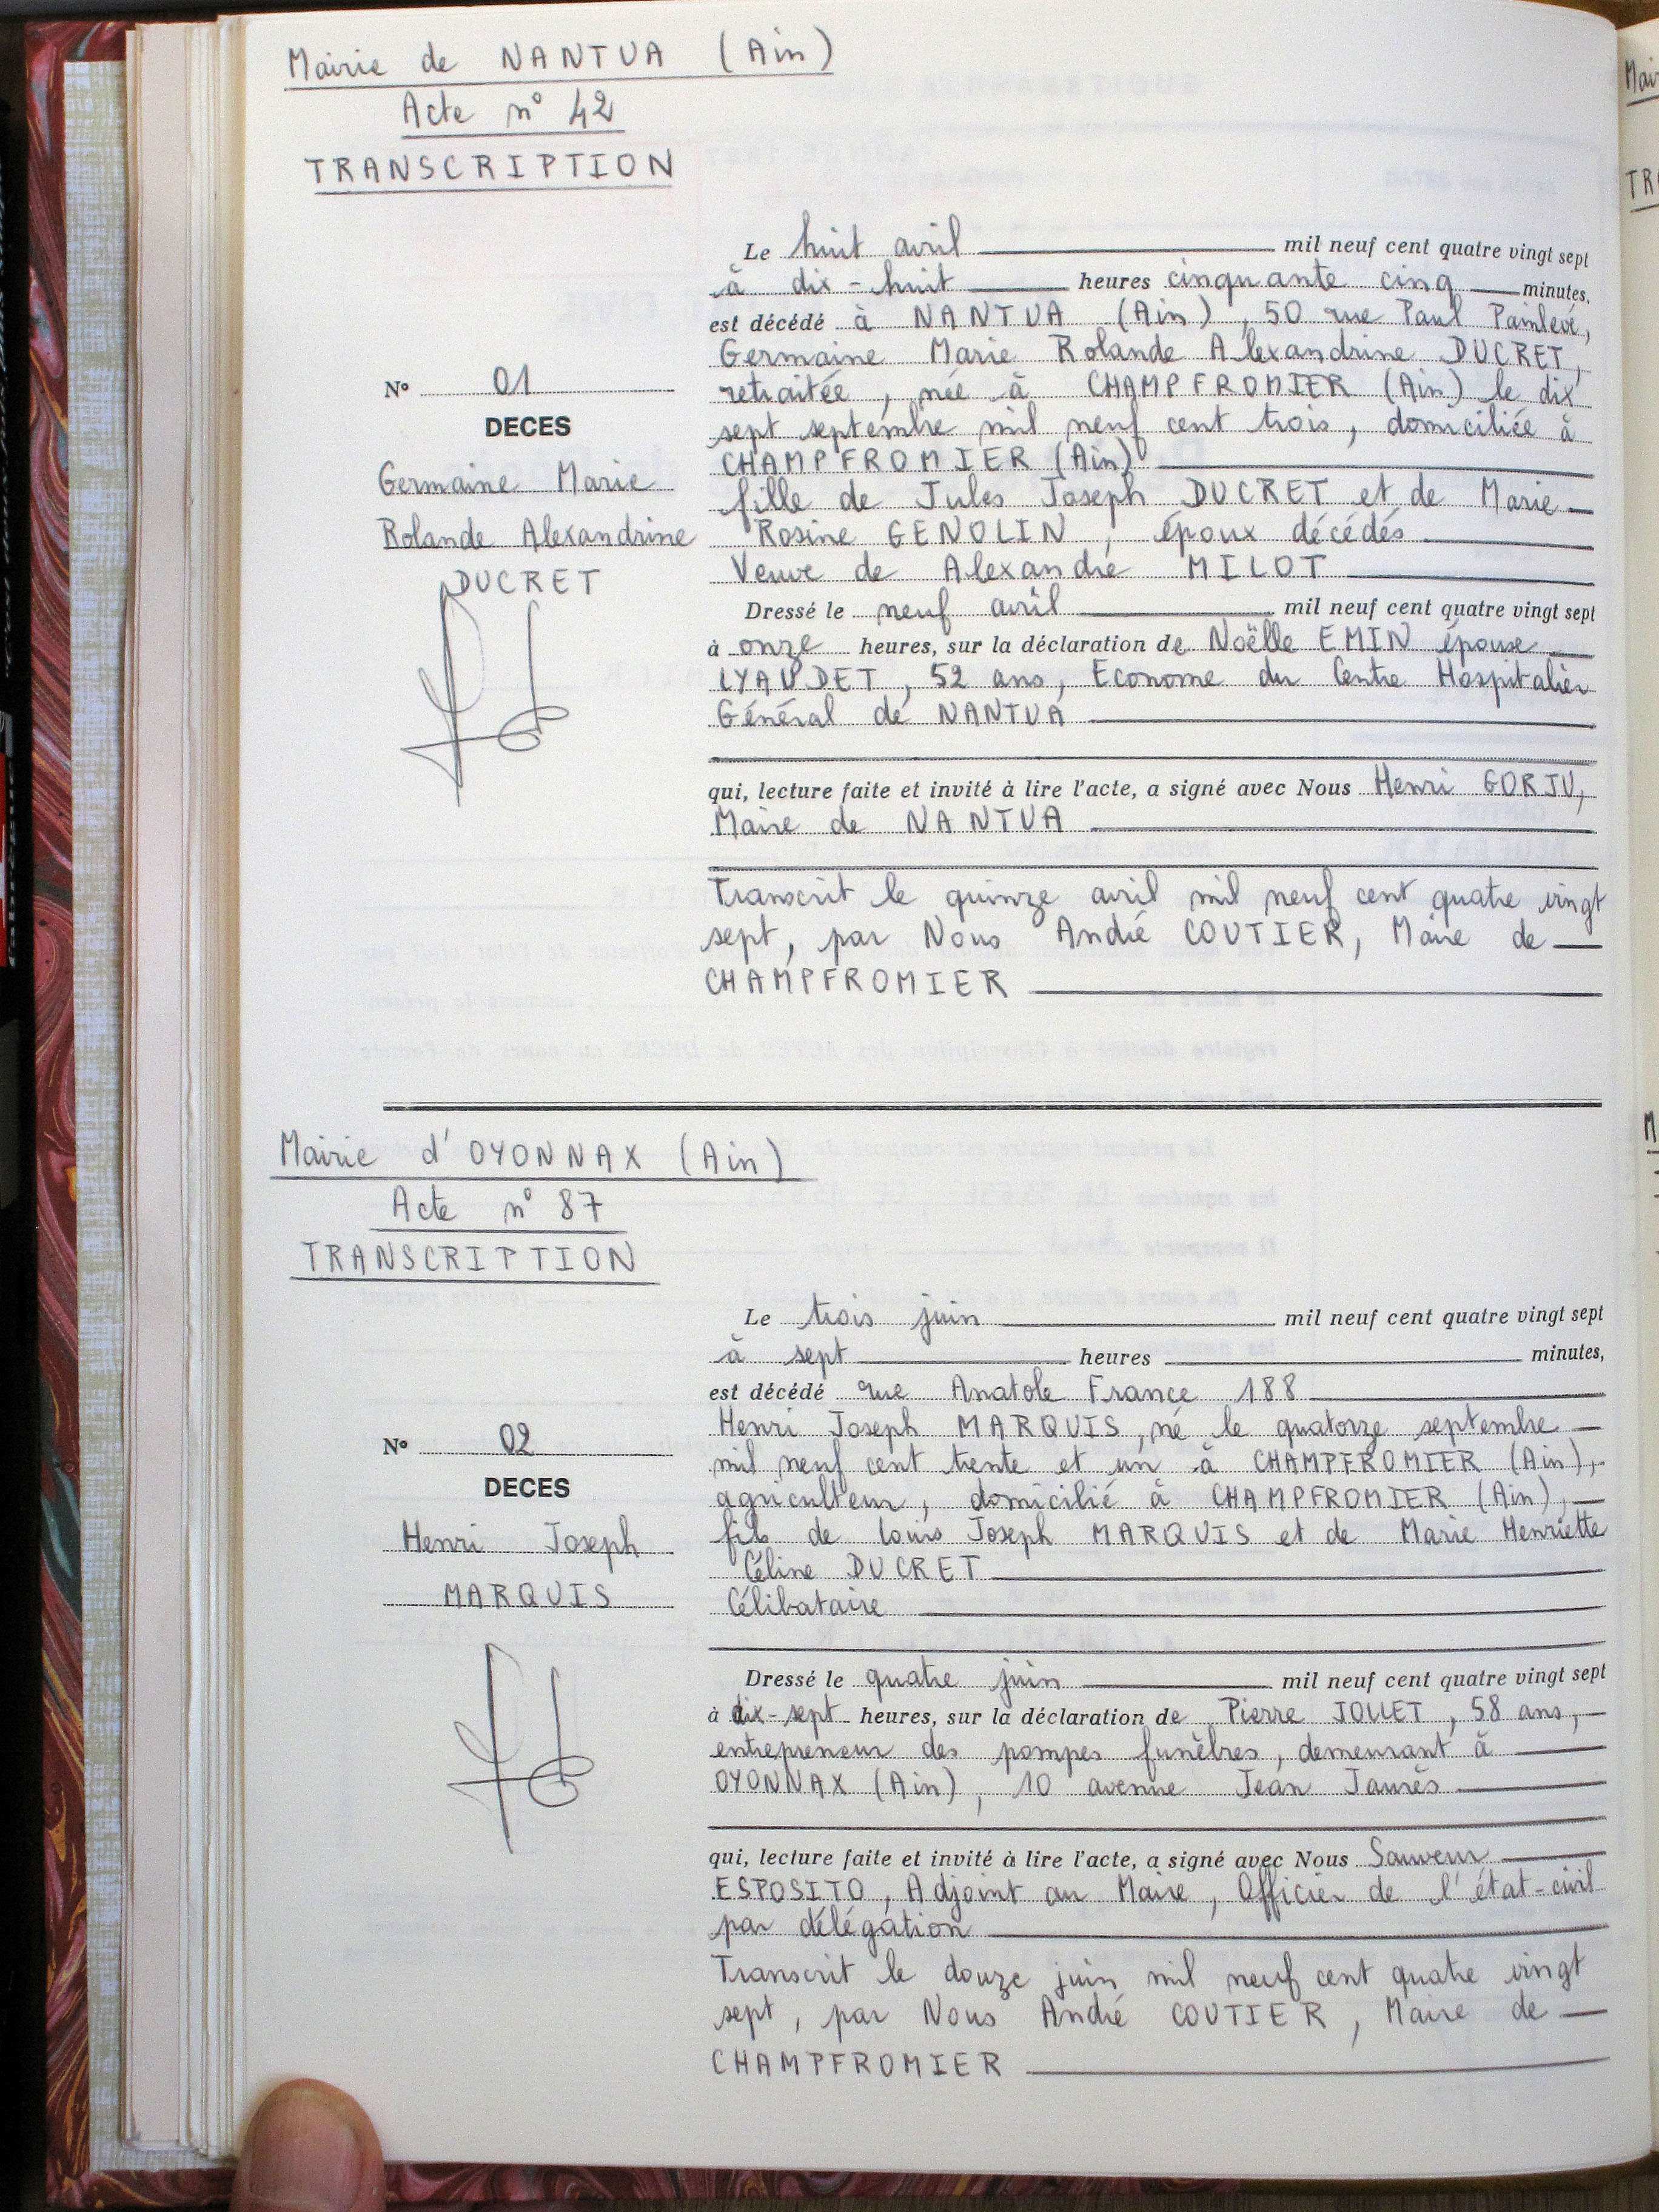 Mairie de NANTUA (Ain)
Acte n° 42
TRANSCRIPTION
Le huit avril mil neuf cent quatre vingt sept
à dix-huit heures cinquante cinq minutes,
est décédé à NANTUA (Ain), 50 rue Paul Painlevé,
Germaine Marie Rolande Alexandrine DUCRET,
retraitée, née à CHAMPFROMIER (Ain) le dix
sept septembre mil neuf cent trois, domiciliée à
CHAMPFROMIER (Ain)
fille de Jules Joseph DUCRET et de Marie
Rosine GENOLIN, époux décédés
Veuve de Alexandre MILOT
N° 01
DECES
Germaine Marie
Rolande Alexandrine
DUCRET
Dressé le neuf avril mil neuf cent quatre vingt sept
à onze heures, sur la déclaration de Noëlle EMIN épouse
LYAUDET, 52 ans, Econome du Centre Hospitalier
Général de NANTUA
qui, lecture faite et invité à lire l'acte, a signé avec Nous Henri GORJU,
Maire de NANTUA
Transcrit le quinze avril mil neuf cent quatre vingt
sept, par Nous André COUTIER, Maire de
CHAMPFROMIER
Mairie d'OYONNAX (Ain)
Acte n° 87
TRANSCRIPTION
Le trois juin mil neuf cent quatre vingt sept
à sept heures minutes,
est décédé rue Anatole France 188
Henri Joseph MARQUIS, né le quatorze septembre
mil neuf cent trente et un à CHAMPFROMIER (Ain),
agriculteur, domicilié à CHAMPFROMIER (Ain),
fils de Louis Joseph MARQUIS et de Marie Henriette
Céline DUCRET
Célibataire
N° 02
DECES
Henri Joseph
MARQUIS
Dressé le quatre juin mil neuf cent quatre vingt sept
à dix-sept heures, sur la déclaration de Pierre JOLLET, 58 ans,
entrepreneur des pompes funèbres, demeurant à
OYONNAX (Ain), 10 avenue Jean Jaurès
qui, lecture faite et invité à lire l'acte, a signé avec Nous Sauveur
ESPOSITO, Adjoint au Maire, Officier de l'état-civil
par délégation
Transcrit le douze juin mil neuf cent quatre vingt
sept, par Nous André COUTIER, Maire de
CHAMPFROMIER